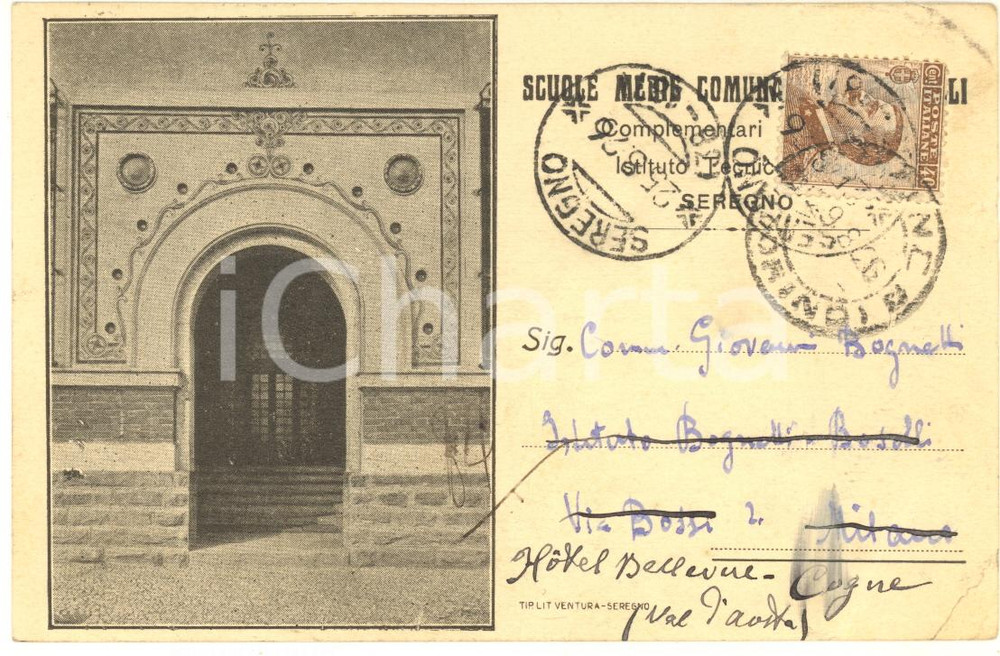 SCUOLE MEDIE COMUNALI
Complementari
Istituto Tecnico
SEREGNO
SEREGNO
POSTE ITALIANE
Cent 40
iCharta
Sig. Comm. Giovanni Bognetti
Istituto Bognetti-Boselli
Via Bossi 2 Milano
Hôtel Bellevue - Cogne
(Val d'aosta)
TIP. LIT VENTURA-SEREGNO